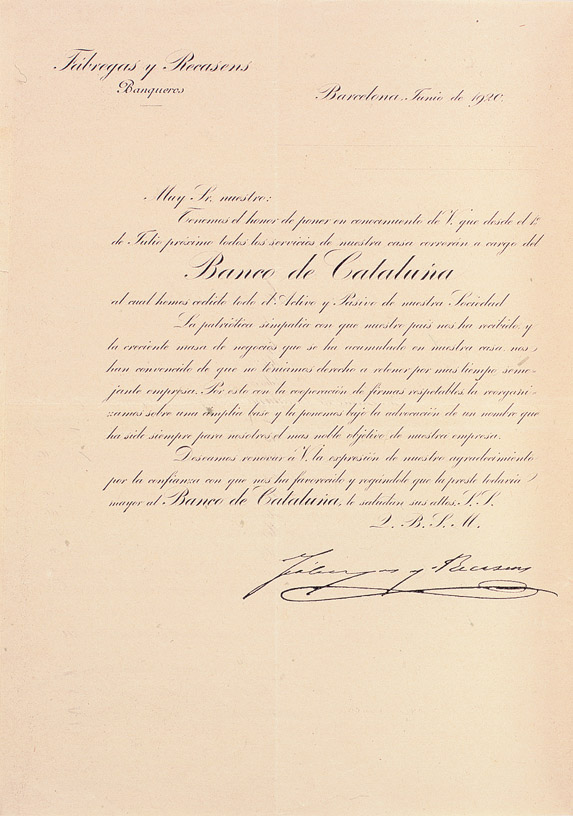 Fábregas y Recasens
Banqueros
Barcelona, Junio de 1920.
Muy Sr. nuestro:
Tenemos el honor de poner en conocimiento de V. que desde el 1º
de Julio próximo todos los servicios de nuestra casa correrán a cargo del
Banco de Cataluña
al cual hemos cedido todo el Activo y Pasivo de nuestra Sociedad
La patriótica simpatía con que nuestro país nos ha recibido, y
la creciente masa de negocios que se ha acumulado en nuestra casa, nos
han convencido de que no teníamos derecho a retener por mas tiempo seme-
jante empresa. Por esto con la cooperación de firmas respetables, la reorgani-
zamos sobre una amplia base y la ponemos bajo la advocación de un nombre que
ha sido siempre para nosotros el mas noble objetivo de nuestra empresa.
Deseamos renovar á V. la expresión de nuestro agradecimiento
por la confianza con que nos ha favorecido y rogándole que la preste todavía
mayor al Banco de Cataluña, le saludan sus attos. S. S.
Q. B. S. M.
Fábregas y Recasens